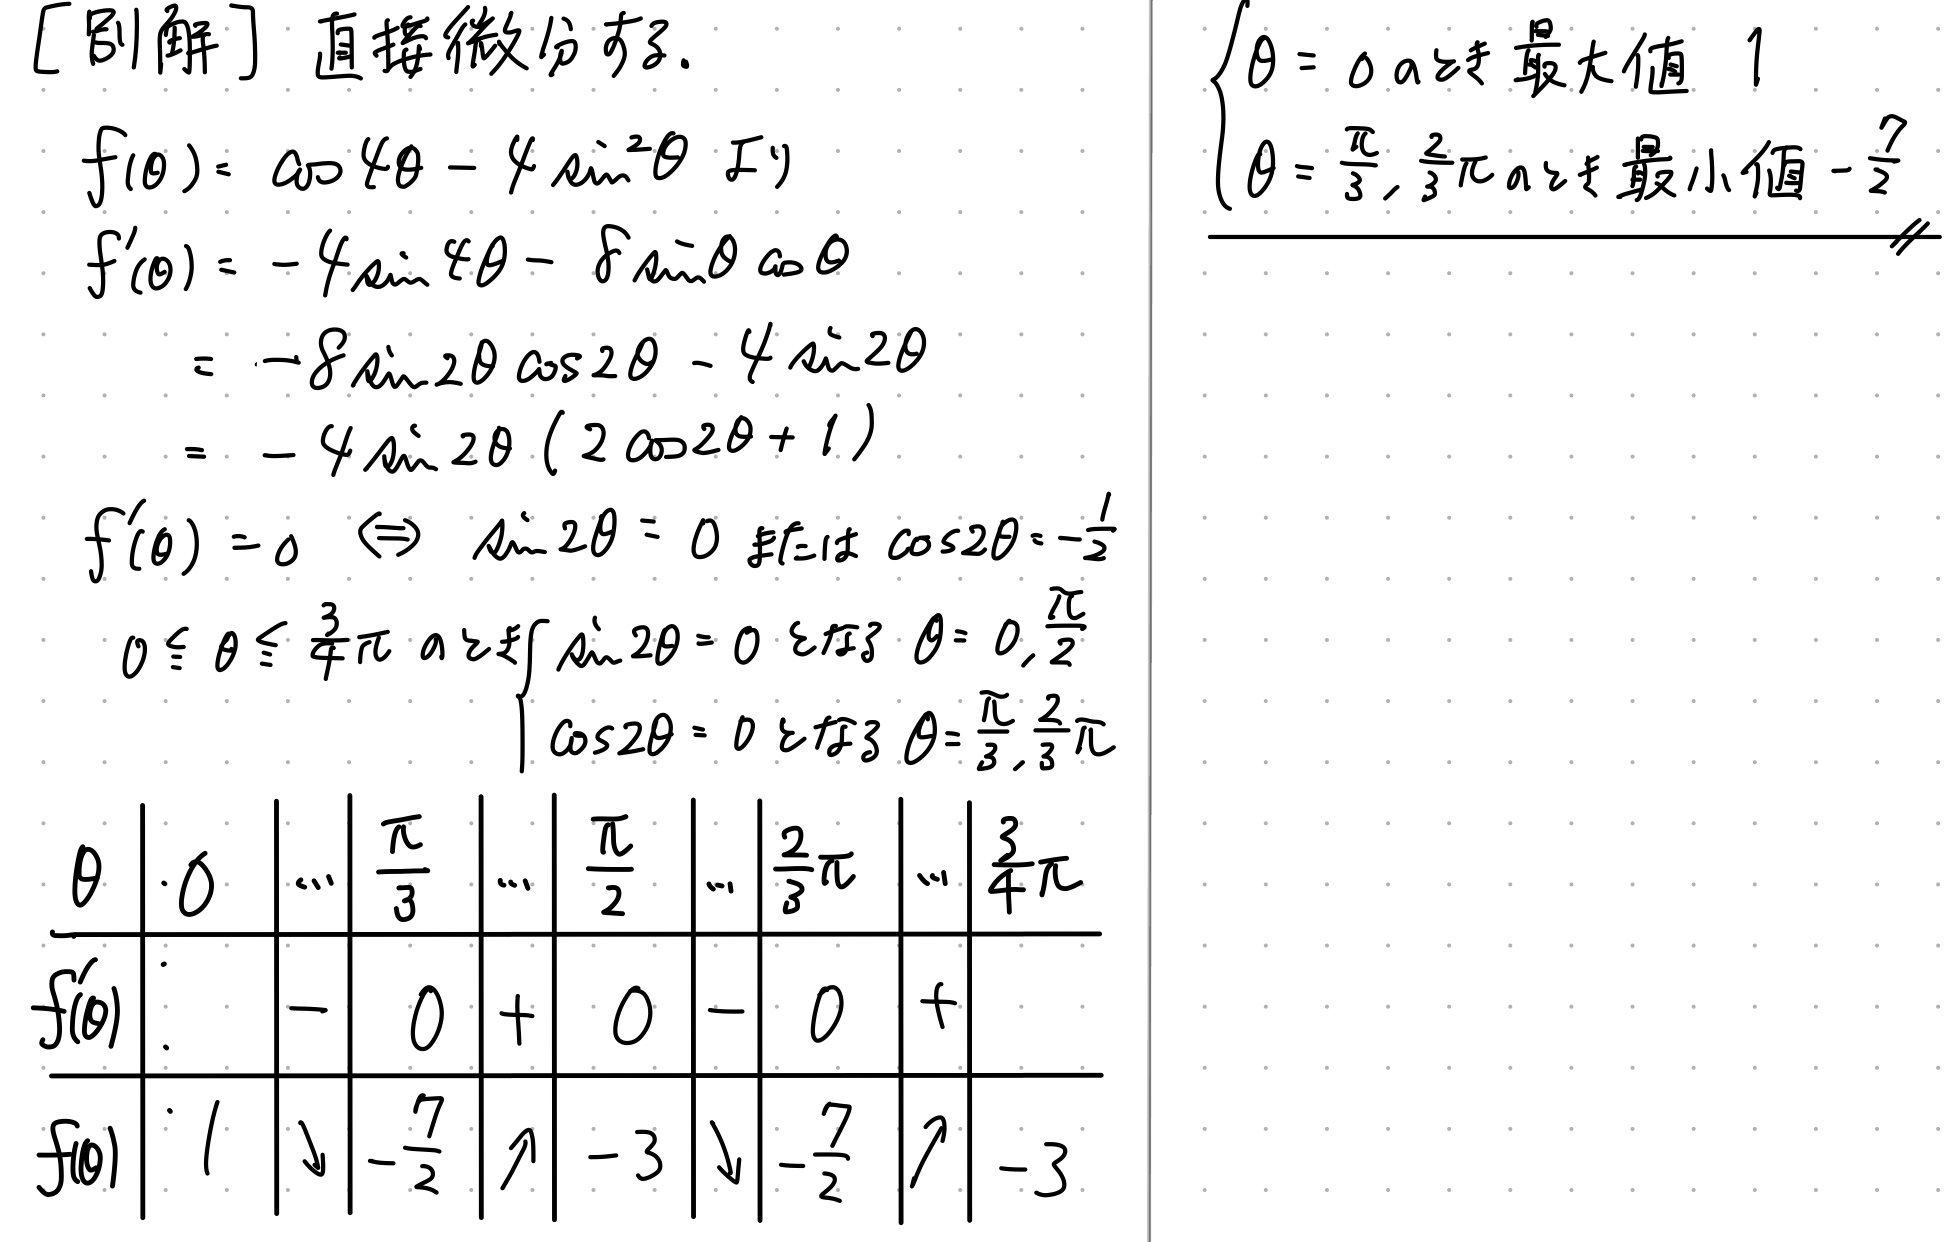 [別解] 直接微分する.
f(θ) = cos4θ - 4sin²θ より
f'(θ) = -4sin4θ - 8sinθcosθ
= -8sin2θcos2θ - 4sin2θ
= -4sin2θ(2cos2θ+1)
f'(θ) = 0 ⇔ sin2θ = 0 または cos2θ = -1/2
0 ≦ θ ≦ 3/4π のとき { sin2θ = 0 となる θ = 0, π/2
cos2θ = 0 となる θ = π/3, 2/3π
θ | 0 | … | π/3 | … | π/2 | … | 2/3π | … | 3/4π
f'(θ) | | - | 0 | + | 0 | - | 0 | + |
f(θ) | 1 | ↘ | -7/2 | ↗ | -3 | ↘ | -7/2 | ↗ | -3
{ θ = 0 のとき 最大値 1
θ = π/3, 2/3π のとき 最小値 -7/2